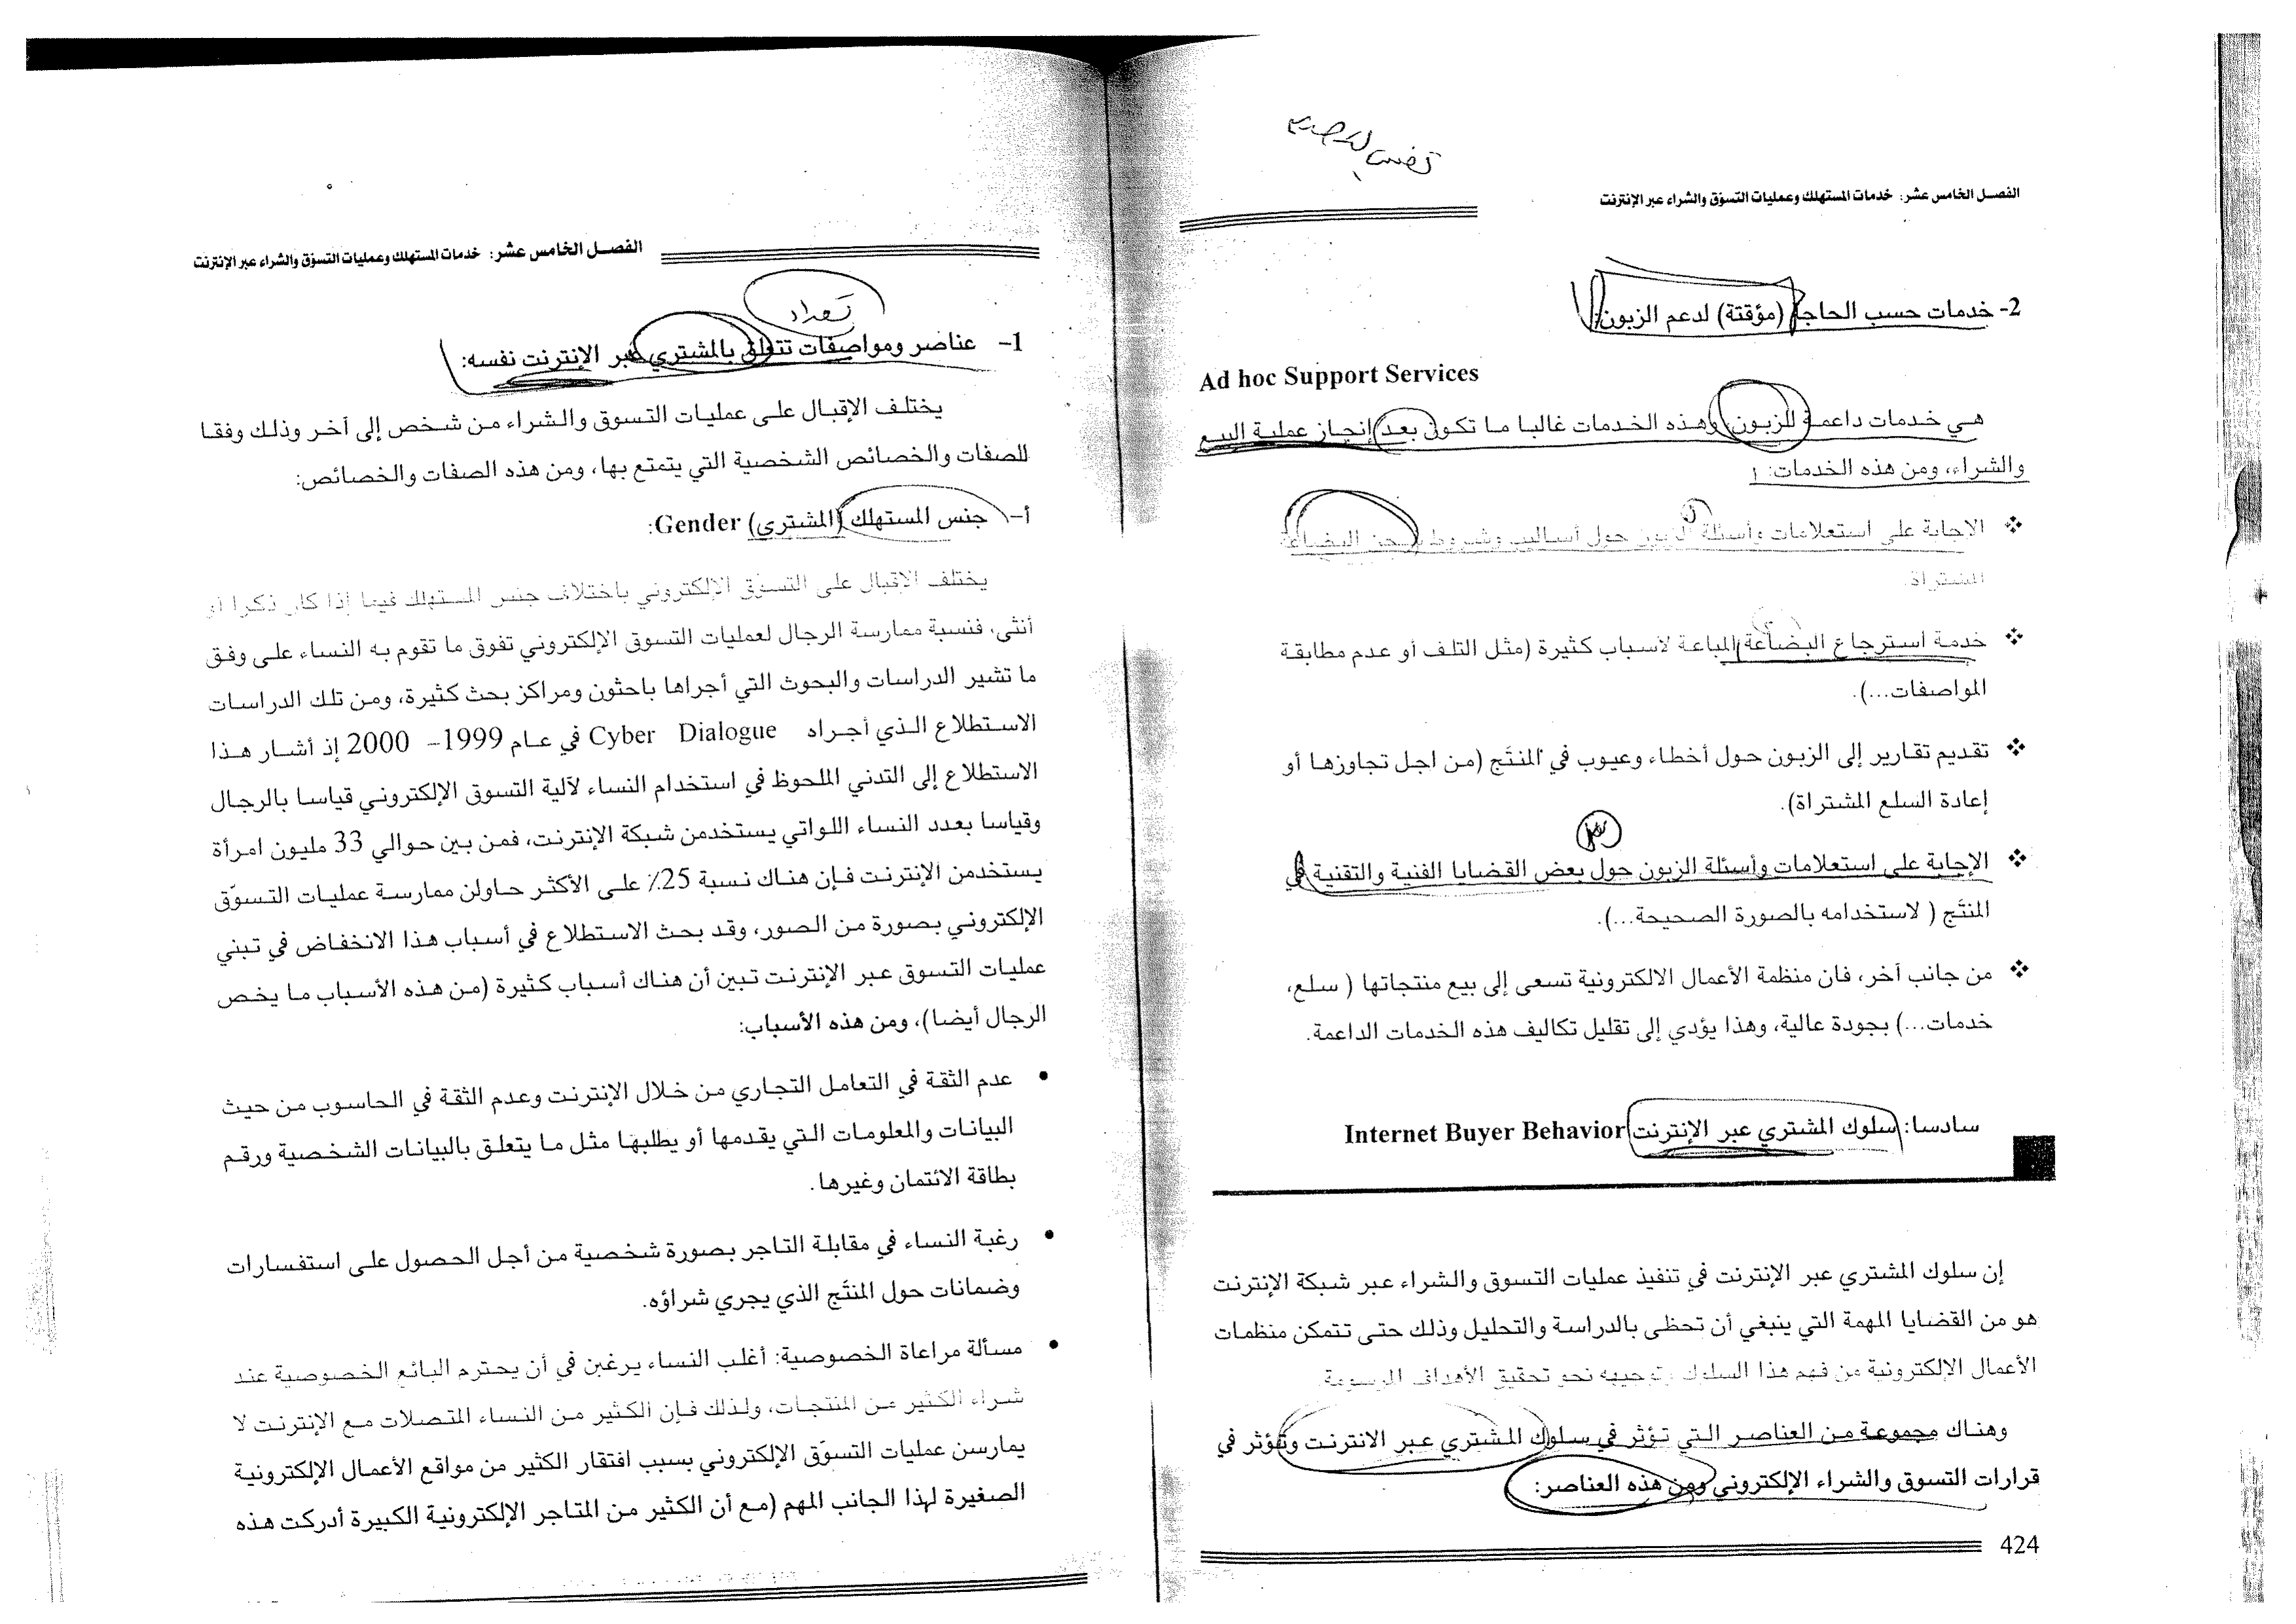 الفصل الخامس عشر: خدمات المستهلك وعمليات التسوّق والشراء عبر الإنترنت
2- خدمات حسب الحاجة (مؤقتة) لدعم الزبون:
Ad hoc Support Services
هي خدمات داعمة للزبون، وهذه الخدمات غالبا ما تكون بعد إنجاز عملية البيع
والشراء، ومن هذه الخدمات:
❖ الاجابة على استعلامات وأسئلة الزبون حول أساليب وشروط شحن البضاعة
المشتراة.
❖ خدمة استرجاع البضاعة المباعة لأسباب كثيرة (مثل التلف أو عدم مطابقة
المواصفات...).
❖ تقديم تقارير إلى الزبون حول أخطاء وعيوب في المنتَج (من اجل تجاوزها أو
إعادة السلع المشتراة).
❖ الإجابة على استعلامات وأسئلة الزبون حول بعض القضايا الفنية والتقنية في
المنتَج ( لاستخدامه بالصورة الصحيحة...).
❖ من جانب أخر، فان منظمة الأعمال الالكترونية تسعى إلى بيع منتجاتها ( سلع،
خدمات...) بجودة عالية، وهذا يؤدي إلى تقليل تكاليف هذه الخدمات الداعمة.
سادسا: سلوك المشتري عبر الإنترنت Internet Buyer Behavior
إن سلوك المشتري عبر الإنترنت في تنفيذ عمليات التسوق والشراء عبر شبكة الإنترنت
هو من القضايا المهمة التي ينبغي أن تحظى بالدراسة والتحليل وذلك حتى تتمكن منظمات
الأعمال الإلكترونية من فهم هذا السلوك وتوجيهه نحو تحقيق الأهداف المرسومة.
وهناك مجموعة من العناصر التي تؤثر في سلوك المشتري عبر الانترنت وتؤثر في
قرارات التسوق والشراء الإلكتروني ومن هذه العناصر:
424
الفصل الخامس عشر: خدمات المستهلك وعمليات التسوّق والشراء عبر الإنترنت
تعداد
1- عناصر ومواصفات تتعلق بالمشتري عبر الإنترنت نفسه:
يختلف الإقبال على عمليات التسوق والشراء من شخص إلى أخر وذلك وفقا
للصفات والخصائص الشخصية التي يتمتع بها، ومن هذه الصفات والخصائص:
أ- جنس المستهلك (المشتري) Gender:
يختلف الإقبال على التسوّق الإلكتروني باختلاف جنس المستهلك فيما إذا كان ذكرا أو
أنثى، فنسبة ممارسة الرجال لعمليات التسوق الإلكتروني تفوق ما تقوم به النساء على وفق
ما تشير الدراسات والبحوث التي أجراها باحثون ومراكز بحث كثيرة، ومن تلك الدراسات
الاستطلاع الذي أجراه Cyber Dialogue في عام 1999- 2000 إذ أشار هذا
الاستطلاع إلى التدني الملحوظ في استخدام النساء لآلية التسوق الإلكتروني قياسا بالرجال
وقياسا بعدد النساء اللواتي يستخدمن شبكة الإنترنت، فمن بين حوالي 33 مليون امرأة
يستخدمن الإنترنت فإن هناك نسبة 25٪ على الأكثر حاولن ممارسة عمليات التسوّق
الإلكتروني بصورة من الصور، وقد بحث الاستطلاع في أسباب هذا الانخفاض في تبني
عمليات التسوق عبر الإنترنت تبين أن هناك أسباب كثيرة (من هذه الأسباب ما يخص
الرجال أيضا)، ومن هذه الأسباب:
• عدم الثقة في التعامل التجاري من خلال الإنترنت وعدم الثقة في الحاسوب من حيث
البيانات والمعلومات التي يقدمها أو يطلبها مثل ما يتعلق بالبيانات الشخصية ورقم
بطاقة الائتمان وغيرها.
• رغبة النساء في مقابلة التاجر بصورة شخصية من أجل الحصول على استفسارات
وضمانات حول المنتَج الذي يجري شراؤه.
• مسألة مراعاة الخصوصية: أغلب النساء يرغبن في أن يحترم البائع الخصوصية عند
شراء الكثير من المنتجات، ولذلك فإن الكثير من النساء المتصلات مع الإنترنت لا
يمارسن عمليات التسوّق الإلكتروني بسبب افتقار الكثير من مواقع الأعمال الإلكترونية
الصغيرة لهذا الجانب المهم (مع أن الكثير من المتاجر الإلكترونية الكبيرة أدركت هذه